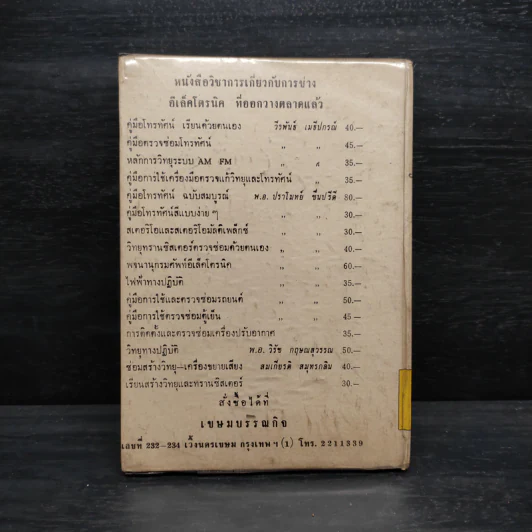 หนังสือวิชาการเกี่ยวกับการช่าง
อีเล็คโตรนิค ที่ออกวางตลาดแล้ว
คู่มือโทรทัศน์ เรียนด้วยตนเอง วีรพันธ์ เมธีปกรณ์ 40.—
คู่มือตรวจซ่อมโทรทัศน์ ,, ,, 45.—
หลักการวิทยุระบบ AM FM ,, 35.—
คู่มือการใช้เครื่องมือตรวจแก้วิทยุและโทรทัศน์ ,, 35.—
คู่มือโทรทัศน์ ฉบับสมบูรณ์ พ.อ. ปราโมทย์ 80.—
คู่มือโทรทัศน์สีแบบง่าย ๆ ,, ,, 30.—
สเตอริโอและสเตอริโอมัลติเพล็กซ์ ,, ,, 30.—
วิทยุทรานซิสเตอร์ตรวจซ่อมด้วยตนเอง ,, ,, 40.—
พจนานุกรมศัพท์อีเล็คโตรนิค ,, ,, 60.—
ไฟฟ้าทางปฏิบัติ ,, ,, 35.—
คู่มือการใช้และตรวจซ่อมรถยนต์ ,, ,, 50.—
คู่มือการใช้ตรวจซ่อมตู้เย็น ,, ,, 45 —
การติดตั้งและตรวจซ่อมเครื่องปรับอากาศ 35.—
วิทยุทางปฏิบัติ พ.อ. วิรัช กฤษณสุวรรณ 50.—
ซ่อมสร้างวิทยุ—เครื่องขยายเสียง สมเกียรติ สมุทรกลิน 40.—
เรียนสร้างวิทยุและทรานซิสเตอร์ 30.—
สั่งซื้อได้ที่
เขษมบรรณกิจ
เลขที่ 232–234 เวิ้งนครเขษม กรุงเทพ ฯ (1) โทร. 2211339